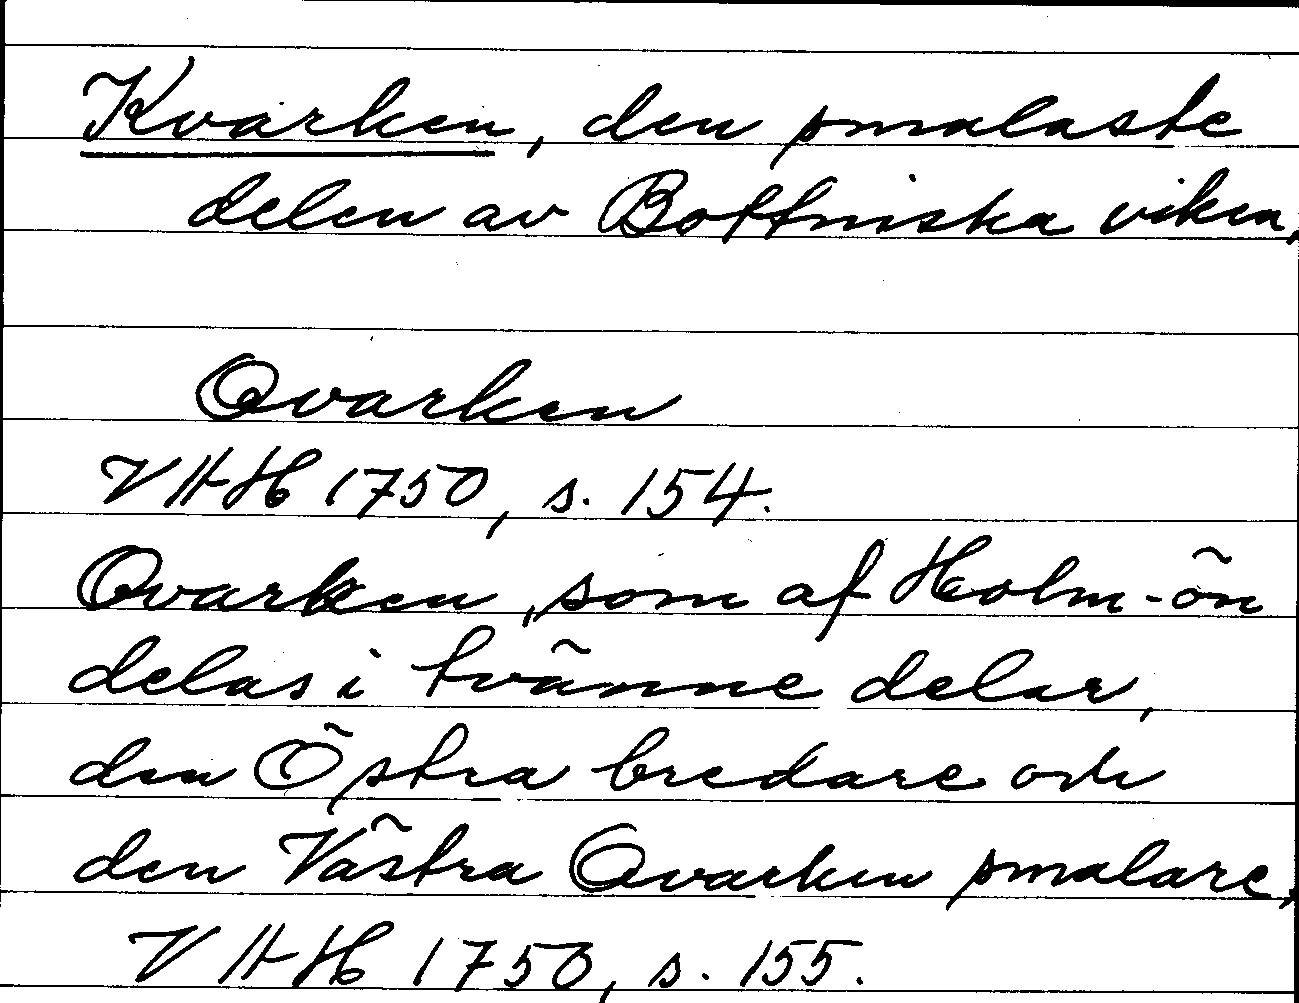 Kvarken, den smalaste
delen av Bottniska viken,
Qvarken
VHH 1750, s. 154.
Qvarken, som af Holm-ön
delas i tvänne delar,
den Östra bredare och
den Västra Qvarken smalare,
VHH 1750, s. 155.